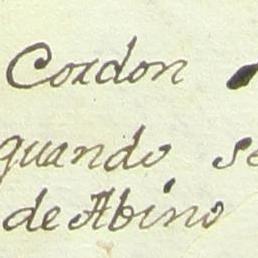 Cordon
quando se
de Abino